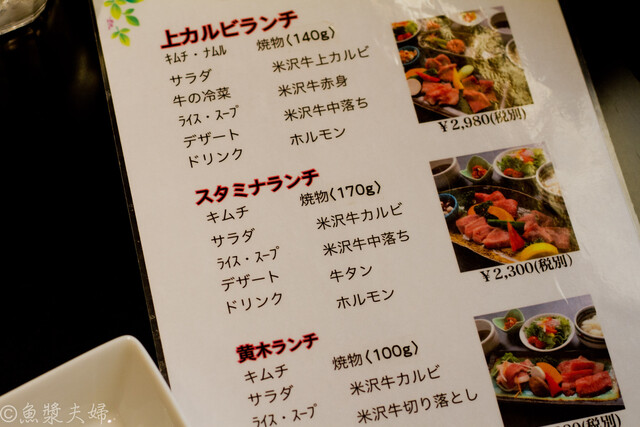 上カルビランチ
キムチ・ナムル 焼物(140g)
サラダ 米沢牛上カルビ
牛の冷菜 米沢牛赤身
ライス・スープ 米沢牛中落ち
デザート ホルモン
ドリンク
￥2,980(税別)
スタミナランチ
キムチ 焼物(170g)
サラダ 米沢牛カルビ
ライス・スープ 米沢牛中落ち
デザート 牛タン
ドリンク ホルモン
￥2,300(税別)
黄木ランチ
キムチ 焼物(100g)
サラダ 米沢牛カルビ
ライス・スープ 米沢牛切り落とし
(税別)
©魚漿夫婦.